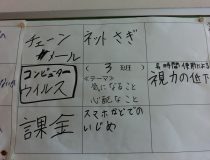 チェーン
メール
ネットさぎ
コンピューター
ウイルス
( 3 班 )
<テーマ>
気になること
心配なこと
長時間使用による
視力の低下
課金
スマホなどでの
いじめ